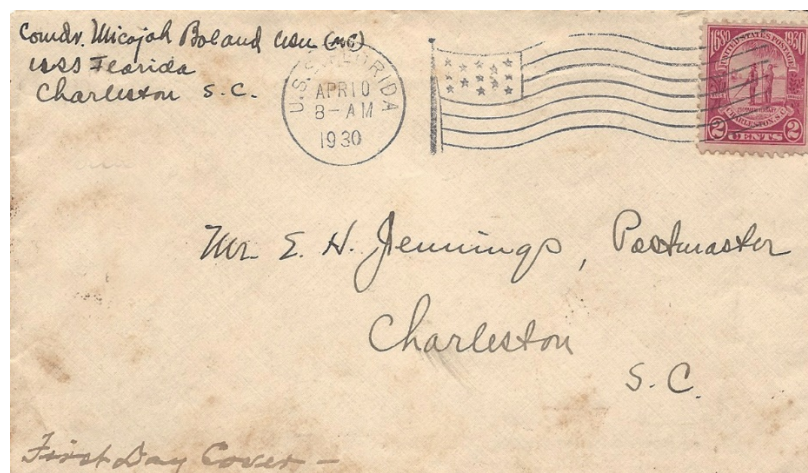 Comdr. Micajah Boland USN (MC)
USS Florida
Charleston S.C.
U.S.S. FLORIDA
APR 10
8-AM
1930
1680 1930
UNITED STATES POSTAGE
CHARLESTON S.C.
2 CENTS 2
Mr. E. H. Jennings, Postmaster
Charleston
S.C.
First Day Cover -